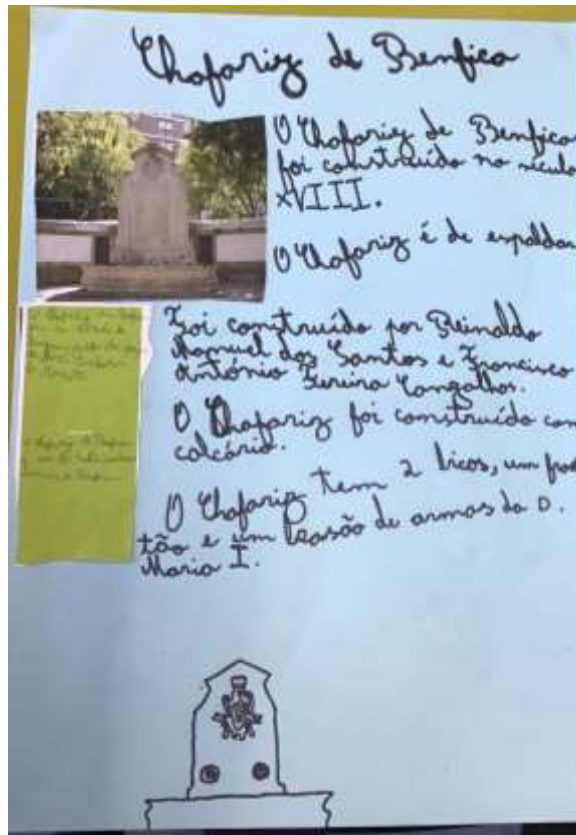 Chafariz de Benfica
O Chafariz de Benfica
foi construído no século
XVIII.
O Chafariz é de espaldar
Foi construído por Reinaldo
Manuel dos Santos e Francisco
António Ferreira Cangalhas.
O Chafariz foi construído com
calcário.
O Chafariz tem 2 bicos, um fron
tão e um brasão de armas da D.
Maria I.